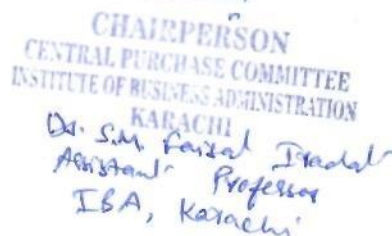 CHAIRPERSON
CENTRAL PURCHASE COMMITTEE
INSTITUTE OF BUSINESS ADMINISTRATION
KARACHI
Dr. S.M. Faisal Iradat
Assistant Professor
IBA, Karachi